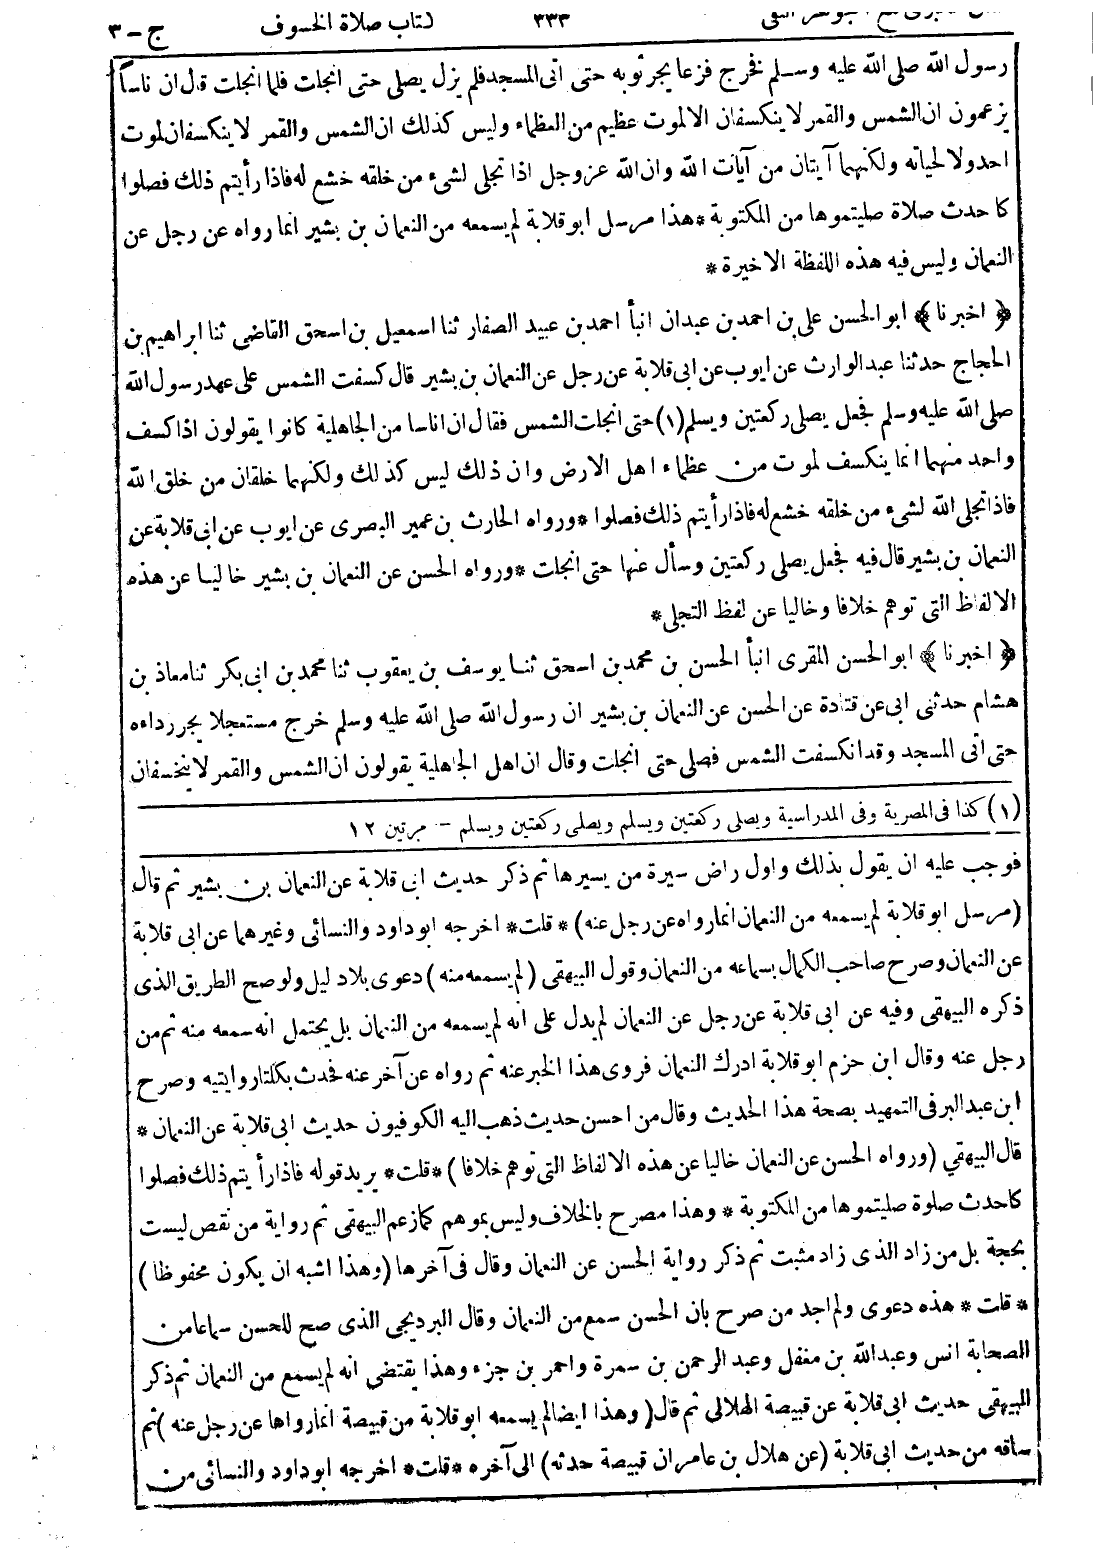 كتاب صلاة الخسوف ٣٣٣ ج - ٣
رسول الله صلى الله عليه وسلم فخرج فزعا يجر ثوبه حتى اتى المسجد فلم يزل يصلى حتى انجلت فلما انجلت قال ان ناسا
يزعمون ان الشمس والقمر لا ينكسفان الا لموت عظيم من العظماء وليس كذلك ان الشمس والقمر لا ينكسفان لموت
احد ولا لحياته ولكنهما آيتان من آيات الله وان الله عز وجل اذا تجلى لشىء من خلقه خشع له فاذا رأيتم ذلك فصلوا
كا حدث صلاة صليتموها من المكتوبة * هذا مرسل ابو قلابة لم يسمعه من النعمان بن بشير انما رواه عن رجل عن
النعمان وليس فيه هذه اللفظة الاخيرة *
﴿ اخبرنا ﴾ ابو الحسن على بن احمد بن عبدان انبأ احمد بن عبيد الصفار ثنا اسمعيل بن اسحق القاضى ثنا ابراهيم بن
الحجاج حدثنا عبد الوارث عن ايوب عن ابى قلابة عن رجل عن النعمان بن بشير قال كسفت الشمس على عهد رسول الله
صلى الله عليه وسلم فجعل يصلى ركعتين ويسلم (١) حتى انجلت الشمس فقال ان اناسا من الجاهلية كانوا يقولون اذا كسف
واحد منهما انما ينكسف لموت من عظماء اهل الارض وان ذلك ليس كذلك ولكنهما خلقان من خلق الله
فاذا تجلى الله لشىء من خلقه خشع له فاذا رأيتم ذلك فصلوا * ورواه الحارث بن عمير البصرى عن ايوب عن ابى قلابة عن
النعمان بن بشير قال فيه فجعل يصلى ركعتين وسأل عنها حتى انجلت * ورواه الحسن عن النعمان بن بشير خاليا عن هذه
الالفاظ التى توهم خلافا وخاليا عن لفظ التجلى *
﴿ اخبرنا ﴾ ابو الحسن المقرى انبأ الحسن بن محمد بن اسحق ثنا يوسف بن يعقوب ثنا محمد بن ابى بكر ثنا معاذ بن
هشام حدثنى ابى عن قتادة عن الحسن عن النعمان بن بشير ان رسول الله صلى الله عليه وسلم خرج مستعجلا يجر رداءه
حتى اتى المسجد وقد انكسفت الشمس فصلى حتى انجلت وقال ان اهل الجاهلية يقولون ان الشمس والقمر لا ينخسفان
(١) كذا فى المصرية وفى المدراسية ويصلى ركعتين ويسلم ويصلى ركعتين ويسلم - مرتين ١٢
فوجب عليه ان يقول بذلك واول راض سيرة من يسيرها ثم ذكر حديث ابى قلابة عن النعمان بن بشير ثم قال
(مرسل ابو قلابة لم يسمعه من النعمان انما رواه عن رجل عنه) * قلت * اخرجه ابو داود والنسائى وغيرهما عن ابى قلابة
عن النعمان وصرح صاحب الكمال بسماعه من النعمان وقول البيهقى (لم يسمعه منه) دعوى بلا دليل ولو صح الطريق الذى
ذكره البيهقى وفيه عن ابى قلابة عن رجل عن النعمان لم يدل على انه لم يسمعه من النعمان بل يحتمل انه سمعه منه ثم من
رجل عنه وقال ابن حزم ابو قلابة ادرك النعمان فروى هذا الخبر عنه ثم رواه عن آخر عنه فحدث بكلتا روايتيه وصرح
ابن عبد البر فى التمهيد بصحة هذا الحديث وقال من احسن حديث ذهب اليه الكوفيون حديث ابى قلابة عن النعمان *
قال البيهقى (ورواه الحسن عن النعمان خاليا عن هذه الالفاظ التى توهم خلافا) * قلت * يريد قوله فاذا رأيتم ذلك فصلوا
كا حدث صلوة صليتموها من المكتوبة * وهذا مصرح بالخلاف وليس بموهم كما زعم البيهقى ثم رواية من نقص ليست
بحجة بل من زاد الذى زاد مثبت ثم ذكر رواية الحسن عن النعمان وقال فى آخرها (وهذا اشبه ان يكون محفوظا)
* قلت * هذه دعوى ولم اجد من صرح بان الحسن سمع من النعمان وقال البرديجى الذى صح للحسن سماعا من
الصحابة انس وعبد الله بن مغفل وعبد الرحمن بن سمرة واحمر بن جزء وهذا يقتضى انه لم يسمع من النعمان ثم ذكر
البيهقى حديث ابى قلابة عن قبيصة الهلالى ثم قال (وهذا ايضا لم يسمعه ابو قلابة من قبيصة انما رواها عن رجل عنه) ثم
ساقه من حديث ابى قلابة (عن هلال بن عامر ان قبيصة حدثه) الى آخره * قلت * اخرجه ابو داود والنسائى من